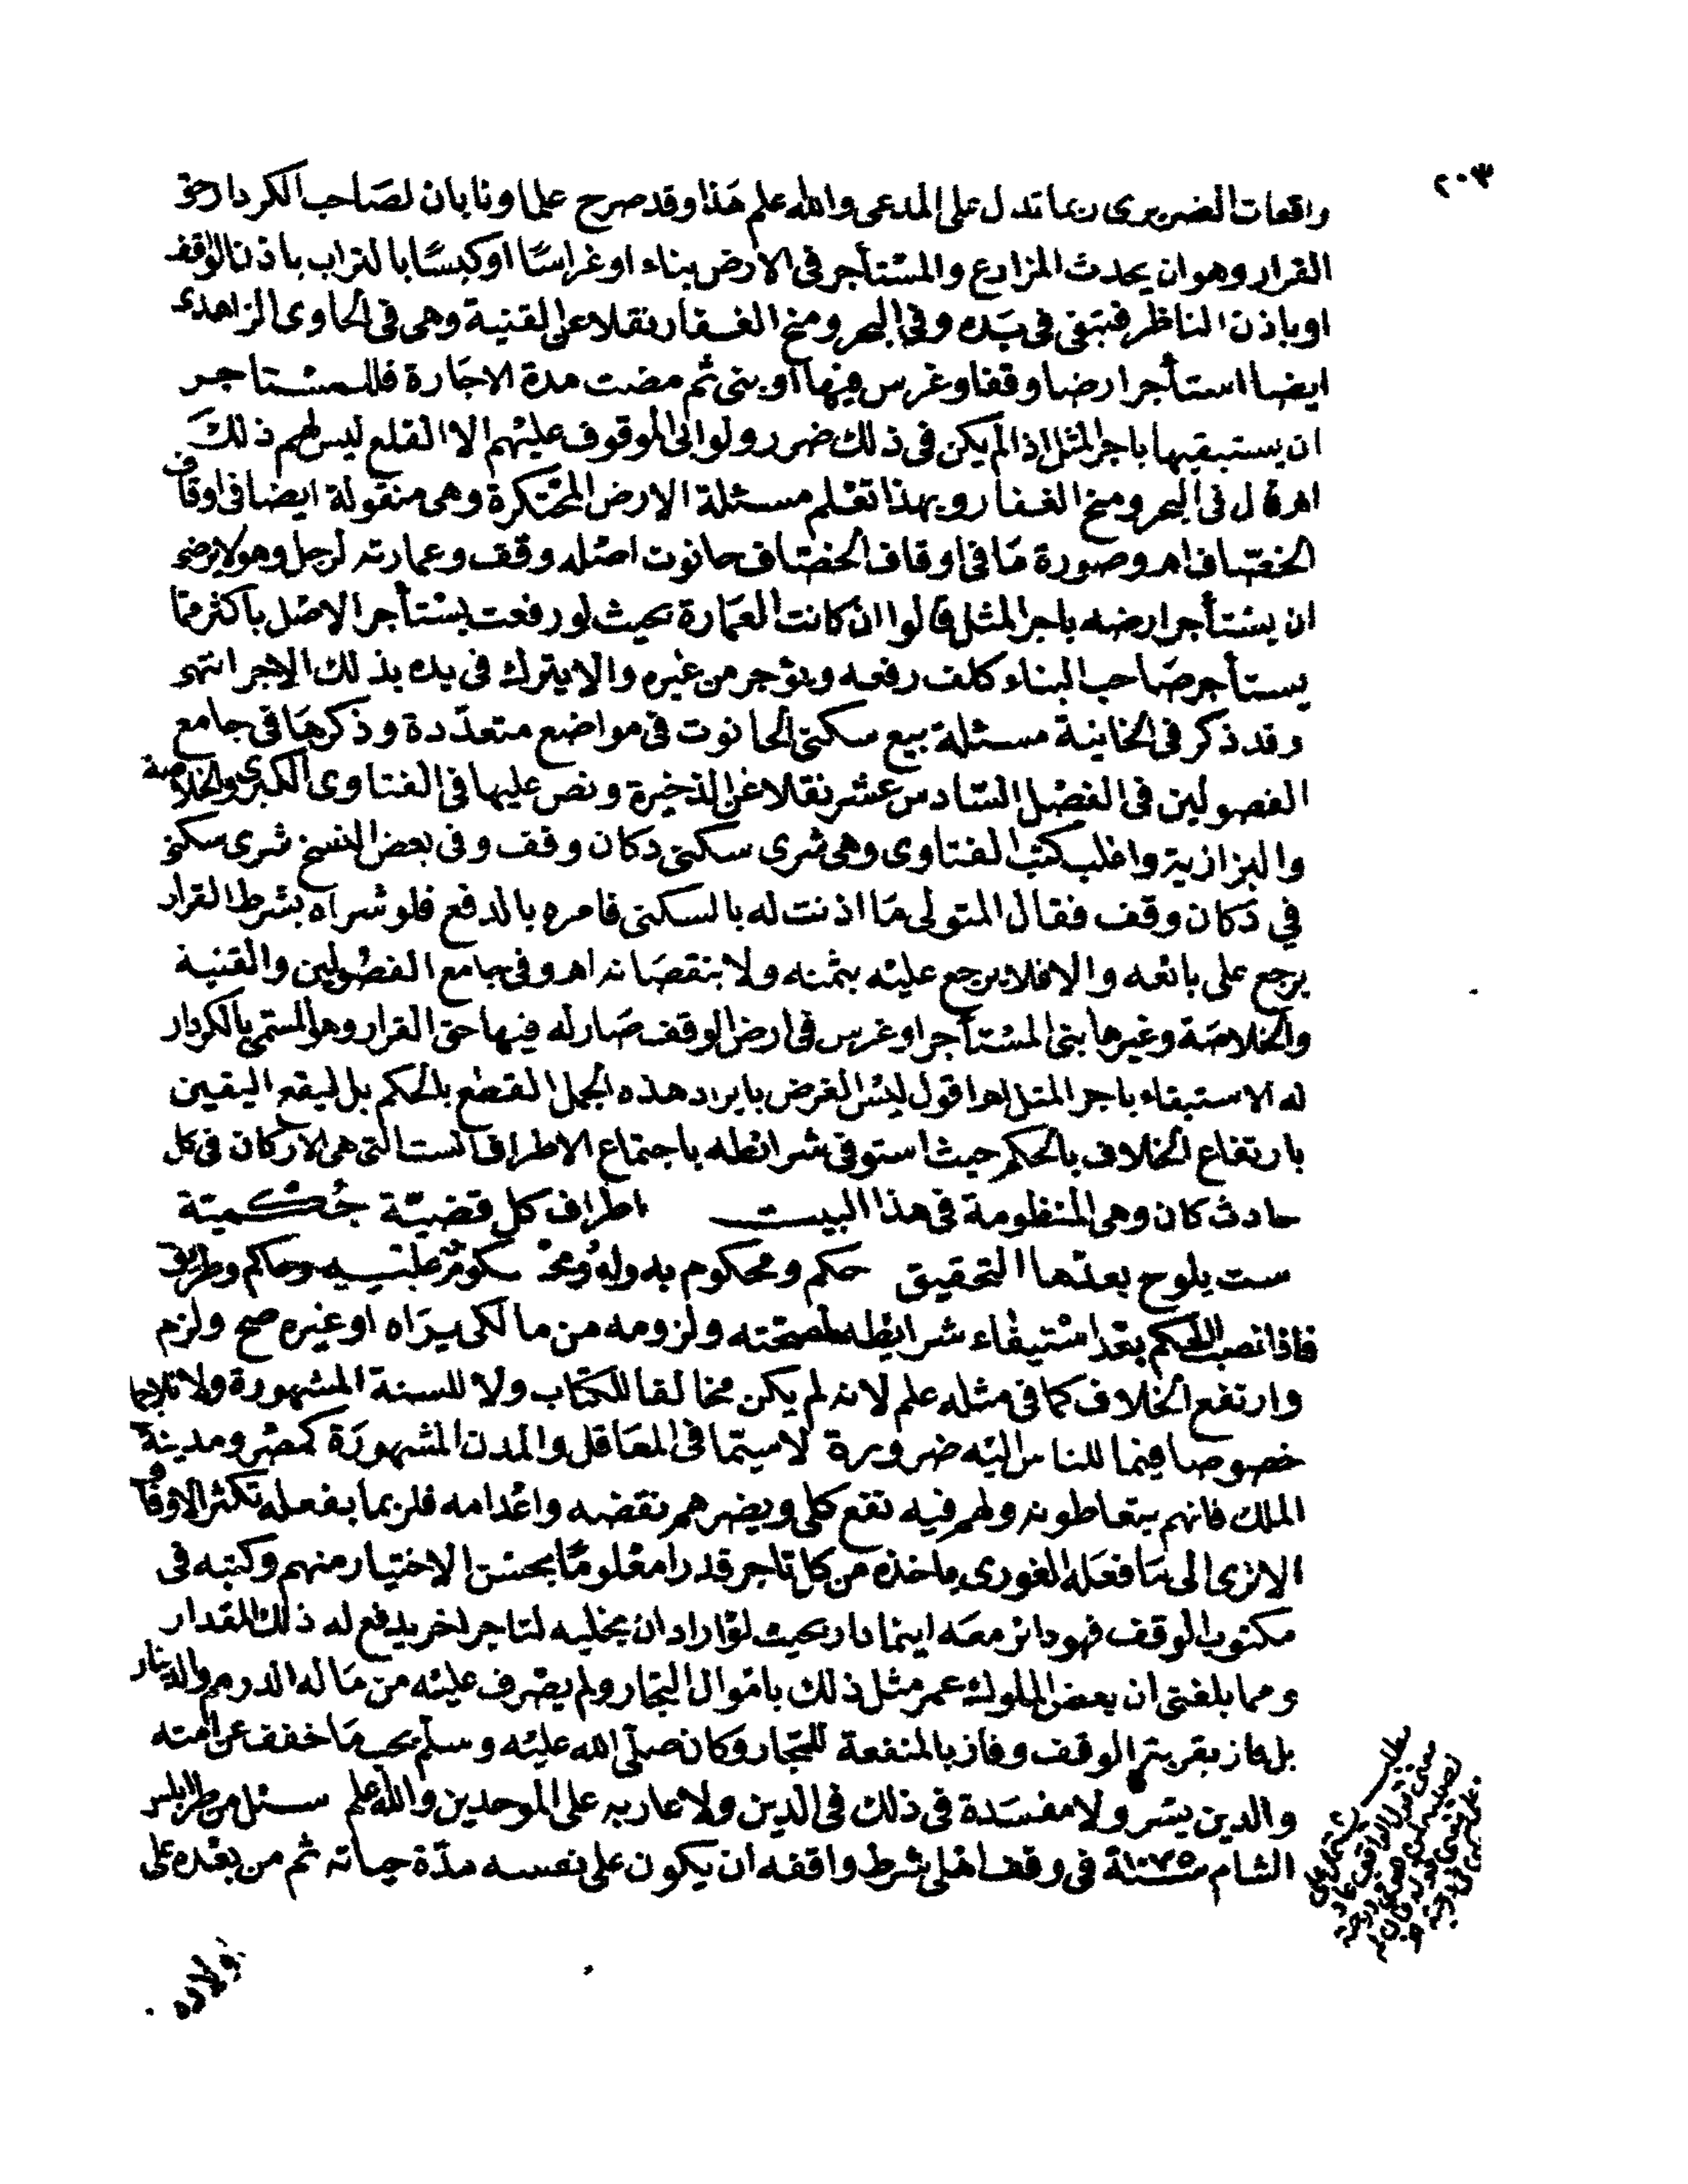 ٢٠٣
واقعات الضريرى ربما تدل على المدعى والله اعلم هذا وقد صرح علماونا بان لصاحب الكردار حق
القرار وهو ان يحدث المزارع والمستأجر فى الارض بناء او غراسًا او كبسًا بالتراب باذن الواقف
او باذن الناظر فتبقى فى يده وفى البحر ومنح الغفار نقلا عن القنية وهى فى الحاوى الزاهدى
ايضا استأجر ارضا وقفا وغرس فيها او بنى ثم مضت مدة الاجارة فللمستاجر
ان يستبقيها باجر المثل اذا لم يكن فى ذلك ضرر ولو ابى الموقوف عليهم الا القلع ليس لهم ذلك
اهـ قال فى البحر ومنح الغفار وبهذا تعلم مسئلة الارض المحتكرة وهى منقولة ايضا فى اوقاف
الخصاف اهـ وصورة ما فى اوقاف الخصاف حانوت اصله وقف وعمارته لرجل وهو لا يرضى
ان يستأجر ارضه باجر المثل قالوا ان كانت العمارة بحيث لو رفعت يستأجر الاصل باكثر مما
يستأجر صاحب البناء كلف رفعه ويؤجر من غيره والا يترك فى يده بذلك الاجر انتهى
وقد ذكر فى الخانية مسئلة بيع سكنى الحانوت فى مواضع متعددة وذكرها فى جامع
الفصولين فى الفصل السادس عشر نقلا عن الذخيرة ونص عليها فى الفتاوى الكبرى والخلاصة
والبزازية واغلب كتب الفتاوى وهى شرى سكنى دكان وقف وفى بعض النسخ شرى سكنى
في دكان وقف فقال المتولى ما اذنت له بالسكنى فامره بالدفع فلو شراه بشرط القرار
يرجع على بائعه والا فلا يرجع عليه بثمنه ولا بنقصانه اهـ وفى جامع الفصولين والقنية
والخلاصة وغيرها بنى المستأجر او غرس فى ارض الوقف صار له فيها حق القرار وهو المسمى بالكردار
له الاستبقاء باجر المثل اهـ اقول ليس الغرض بايراد هذه الجمل القطع بالحكم بل ليقع اليقين
بارتفاع الخلاف بالحكم حيث استوفى شرائطه باجتماع الاطراف الست التى هى الاركان فى كل
حادث كان وهى المنظومة فى هذا البيت اطراف كل قضية حكمية
ست يلوح بعدها التحقيق حكم ومحكوم به وله ومحـ ـكوم عليه وحاكم وطريق
فاذا نصب الحكم بعد استيفاء شرايطه لصحته ولزومه من مالكى يراه او غيره صح ولزم
وارتفع الخلاف كما فى مثله علم لانه لم يكن مخالفا للكتاب ولا للسنة المشهورة ولا للاجماع
خصوصا فيما للناس اليه ضرورة لا سيما فى المعاقل والمدن المشهورة كمصر ومدينة
الملك فانهم يتعاطونه ولهم فيه نفع كلى ويضرهم نقضه واعدامه فلربما بفعله تكثر الاوقاف
الا ترى الى ما فعله الغورى باخذه من كل تاجر قدرا معلوما بحسن الاختيار منهم وكتبه فى
مكتوب الوقف فهو دائر معه اينما دار بحيث لو اراد ان يخليه لتاجر اخر يدفع له ذلك المقدار
ومما بلغنى ان بعض الملوك عمر مثل ذلك باموال التجار ولم يصرف عليه من ماله الدرهم والدينار
بل فاز بقربة الوقف وفاز بالمنفعة للتجار وكان صلى الله عليه وسلم يحب ما خفف عن امته
والدين يسر ولا مفسدة فى ذلك فى الدين ولا عار به على الموحدين والله اعلم سئل من طرابلس
الشام سنة ١٠٧٥ فى وقف اهلى شرط واقفه ان يكون على نفسه مدة حياته ثم من بعده على
اولاده